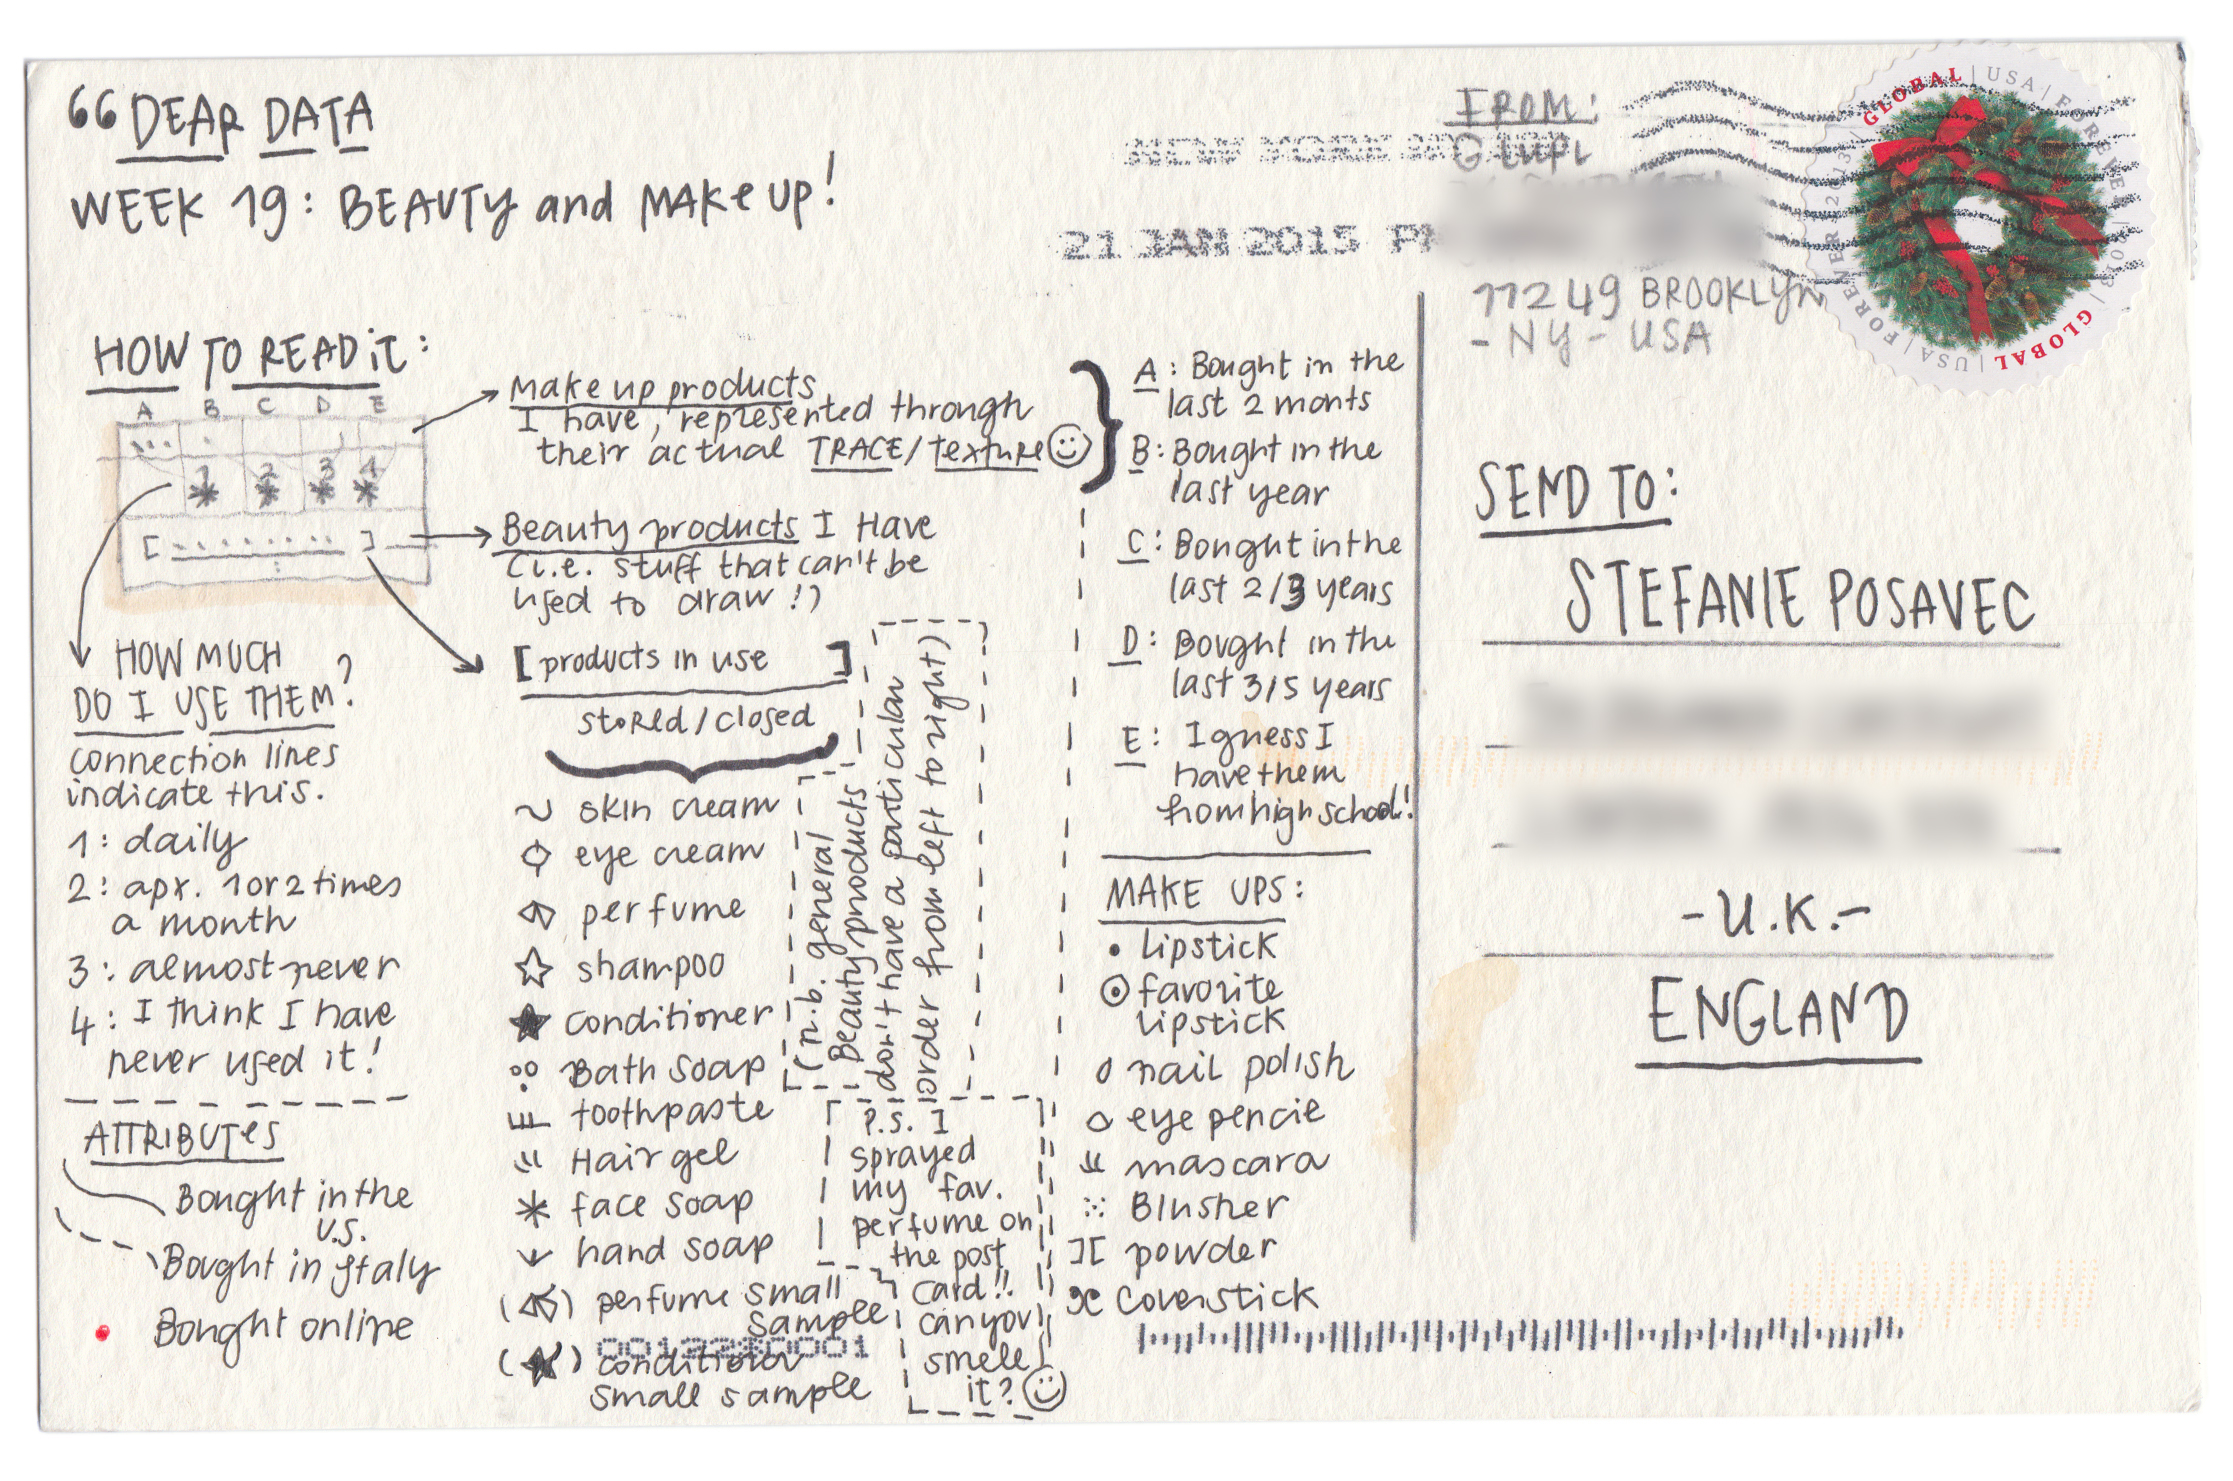 DEAR DATA
WEEK 19: BEAUTY and MAKE UP!
HOW TO READ iT:
A B C D E
1 2 3 4
[ ]
Make up products
I have, represented through
their actual TRACE/Texture
Beauty products I Have
(i.e. stuff that can't be
used to draw!)
[products in use ]
stored/closed
HOW MUCH
DO I USE THEM?
connection lines
indicate this.
1: daily
2: apx. 1 or 2 times
a month
3: almost never
4: I think I have
never used it!
ATTRIBUTES
Bought in the
U.S.
Bought in Italy
Bought online
skin cream
eye cream
perfume
shampoo
conditioner
Bath soap
toothpaste
Hair gel
face soap
hand soap
( ) perfume small
sample
( ) conditioner
small sample
0012280001
(n.b. general
Beauty products
don't have a particular
order from left to right)
P.S. I
sprayed
my fav.
perfume on
the post
card!!
can you
smell
it?
A: Bought in the
last 2 monts
B: Bought in the
last year
C: Bought in the
last 2/3 years
D: Bought in the
last 3/5 years
E: I guess I
have them
from high school!
MAKE UPS:
lipstick
favorite
lipstick
nail polish
eye pencil
mascara
Blusher
powder
coverstick
NEW YORK NY
21 JAN 2015 PM
FROM:
G. LUPI
11249 BROOKLYN
- NY - USA
GLOBAL | USA | FOREVER | 2013 | GLOBAL | USA | FOREVER | 2013 |
SEND TO:
STEFANIE POSAVEC
- U.K. -
ENGLAND